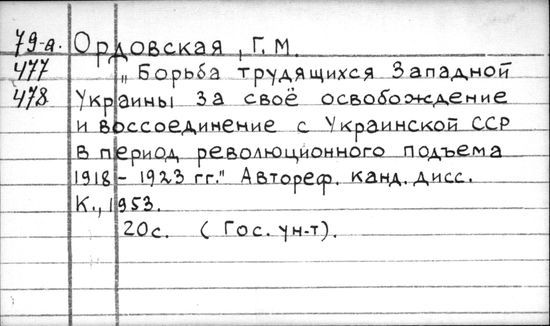 79-а. Ордовская, Г.М.
477 „Борьба трудящихся Западной
478 Украины за своё освобождение
и воссоединение с Украинской ССР
в период революционного подъема
1918 – 1923 гг." Автореф. канд. дисс.
К., 1953.
20с. (Гос. ун-т).